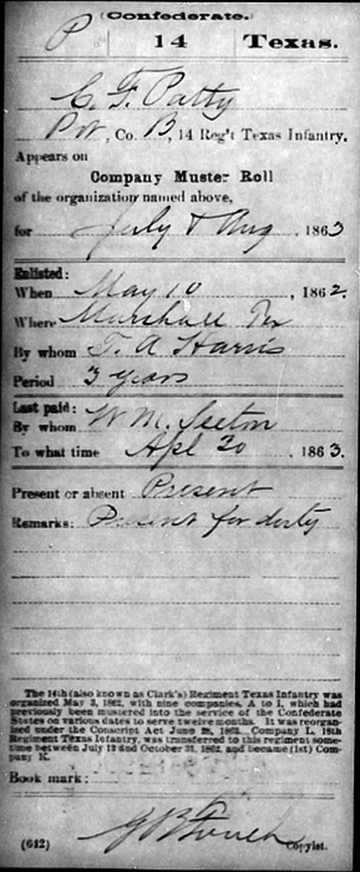 (Confederate.)
P 14 Texas.
C. F. Patty
Pvt, Co. B, 14 Reg't Texas Infantry.
Appears on
Company Muster Roll
of the organization named above,
for July & Aug, 1863
Enlisted:
When May 10, 1862.
Where Marshall Tex
By whom T. A Harris
Period 3 years
Last paid:
By whom W. M. Seeton
To what time Apl 30, 1863.
Present or absent Present
Remarks: Present for duty
The 14th (also known as Clark's) Regiment Texas Infantry was
organized May 3, 1862, with nine companies, A to I, which had
previously been mustered into the service of the Confederate
States on various dates to serve twelve months. It was reorgan-
ized under the Conscript Act June 28, 1862. Company L, 18th
Regiment Texas Infantry, was transferred to this regiment some-
time between July 12 and October 31, 1862, and became (1st) Com-
pany K.
Book mark:
(642) Copyist.